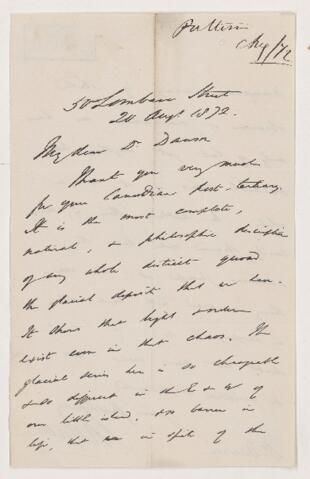 Aug/72
50 Lombard Street
20 Augt 1872.
My dear Dr Dawson
Thank you very much
for your Canadian Post-tertiary.
It is the most complete,
natural, & philosophic description
of any whole district quoad
the glacial deposits that we have.
It shows that light & order
exist even in that chaos. The
glacial series here is so changeable
& so different in the E & W of
our little island, & so barren in
life, that we in spite of the